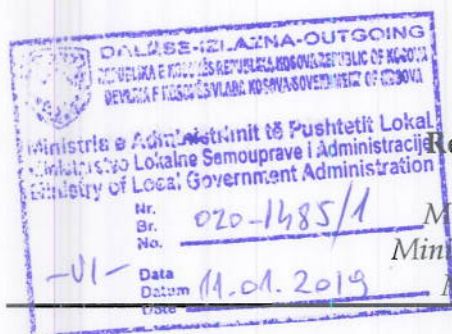 DALËSE-IZLAZNA-OUTGOING
REPUBLIKA E KOSOVËS REPUBLIKA KOSOVA REPUBLIC OF KOSOVA
QEVERIA E KOSOVËS VLADA KOSOVA GOVERNMENT OF KOSOVA
Ministria e Administrimit të Pushtetit Lokal
Ministarstvo Lokalne Samouprave i Administracije
Ministry of Local Government Administration
Re
Nr.
Br.
No. 020-1485/1
M
Mini
-VI-
Data
Datum 11.01.2019
Date